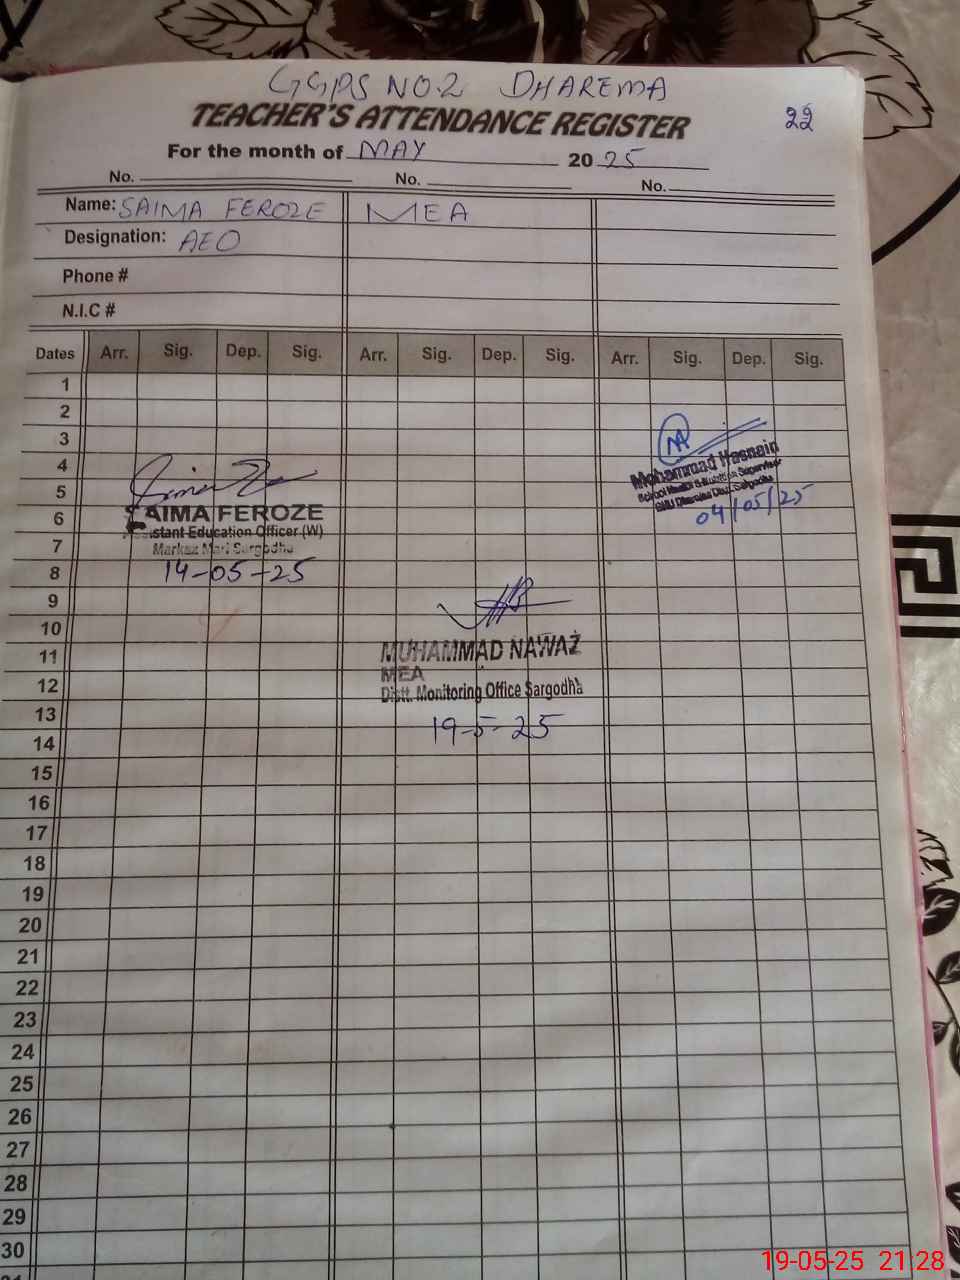 GGPS NO.2 DHAREMA
TEACHER'S ATTENDANCE REGISTER 22
For the month of MAY 2025
No. No. No.
Name: SAIMA FEROZE MEA
Designation: AEO
Phone #
N.I.C #
Dates Arr. Sig. Dep. Sig. Arr. Sig. Dep. Sig. Arr. Sig. Dep. Sig.
1
2
3
4
5
6
7
8
9
10
11
12
13
14
15
16
17
18
19
20
21
22
23
24
25
26
27
28
29
30
SAIMA FEROZE
Assistant Education Officer (W)
Markaz Mari Sargodha
14-05-25
MUHAMMAD NAWAZ
MEA
Distt. Monitoring Office Sargodha
19-5-25
Mohammad Hasnain
School
Sargodha
04/05/25
19-05-25 21:28